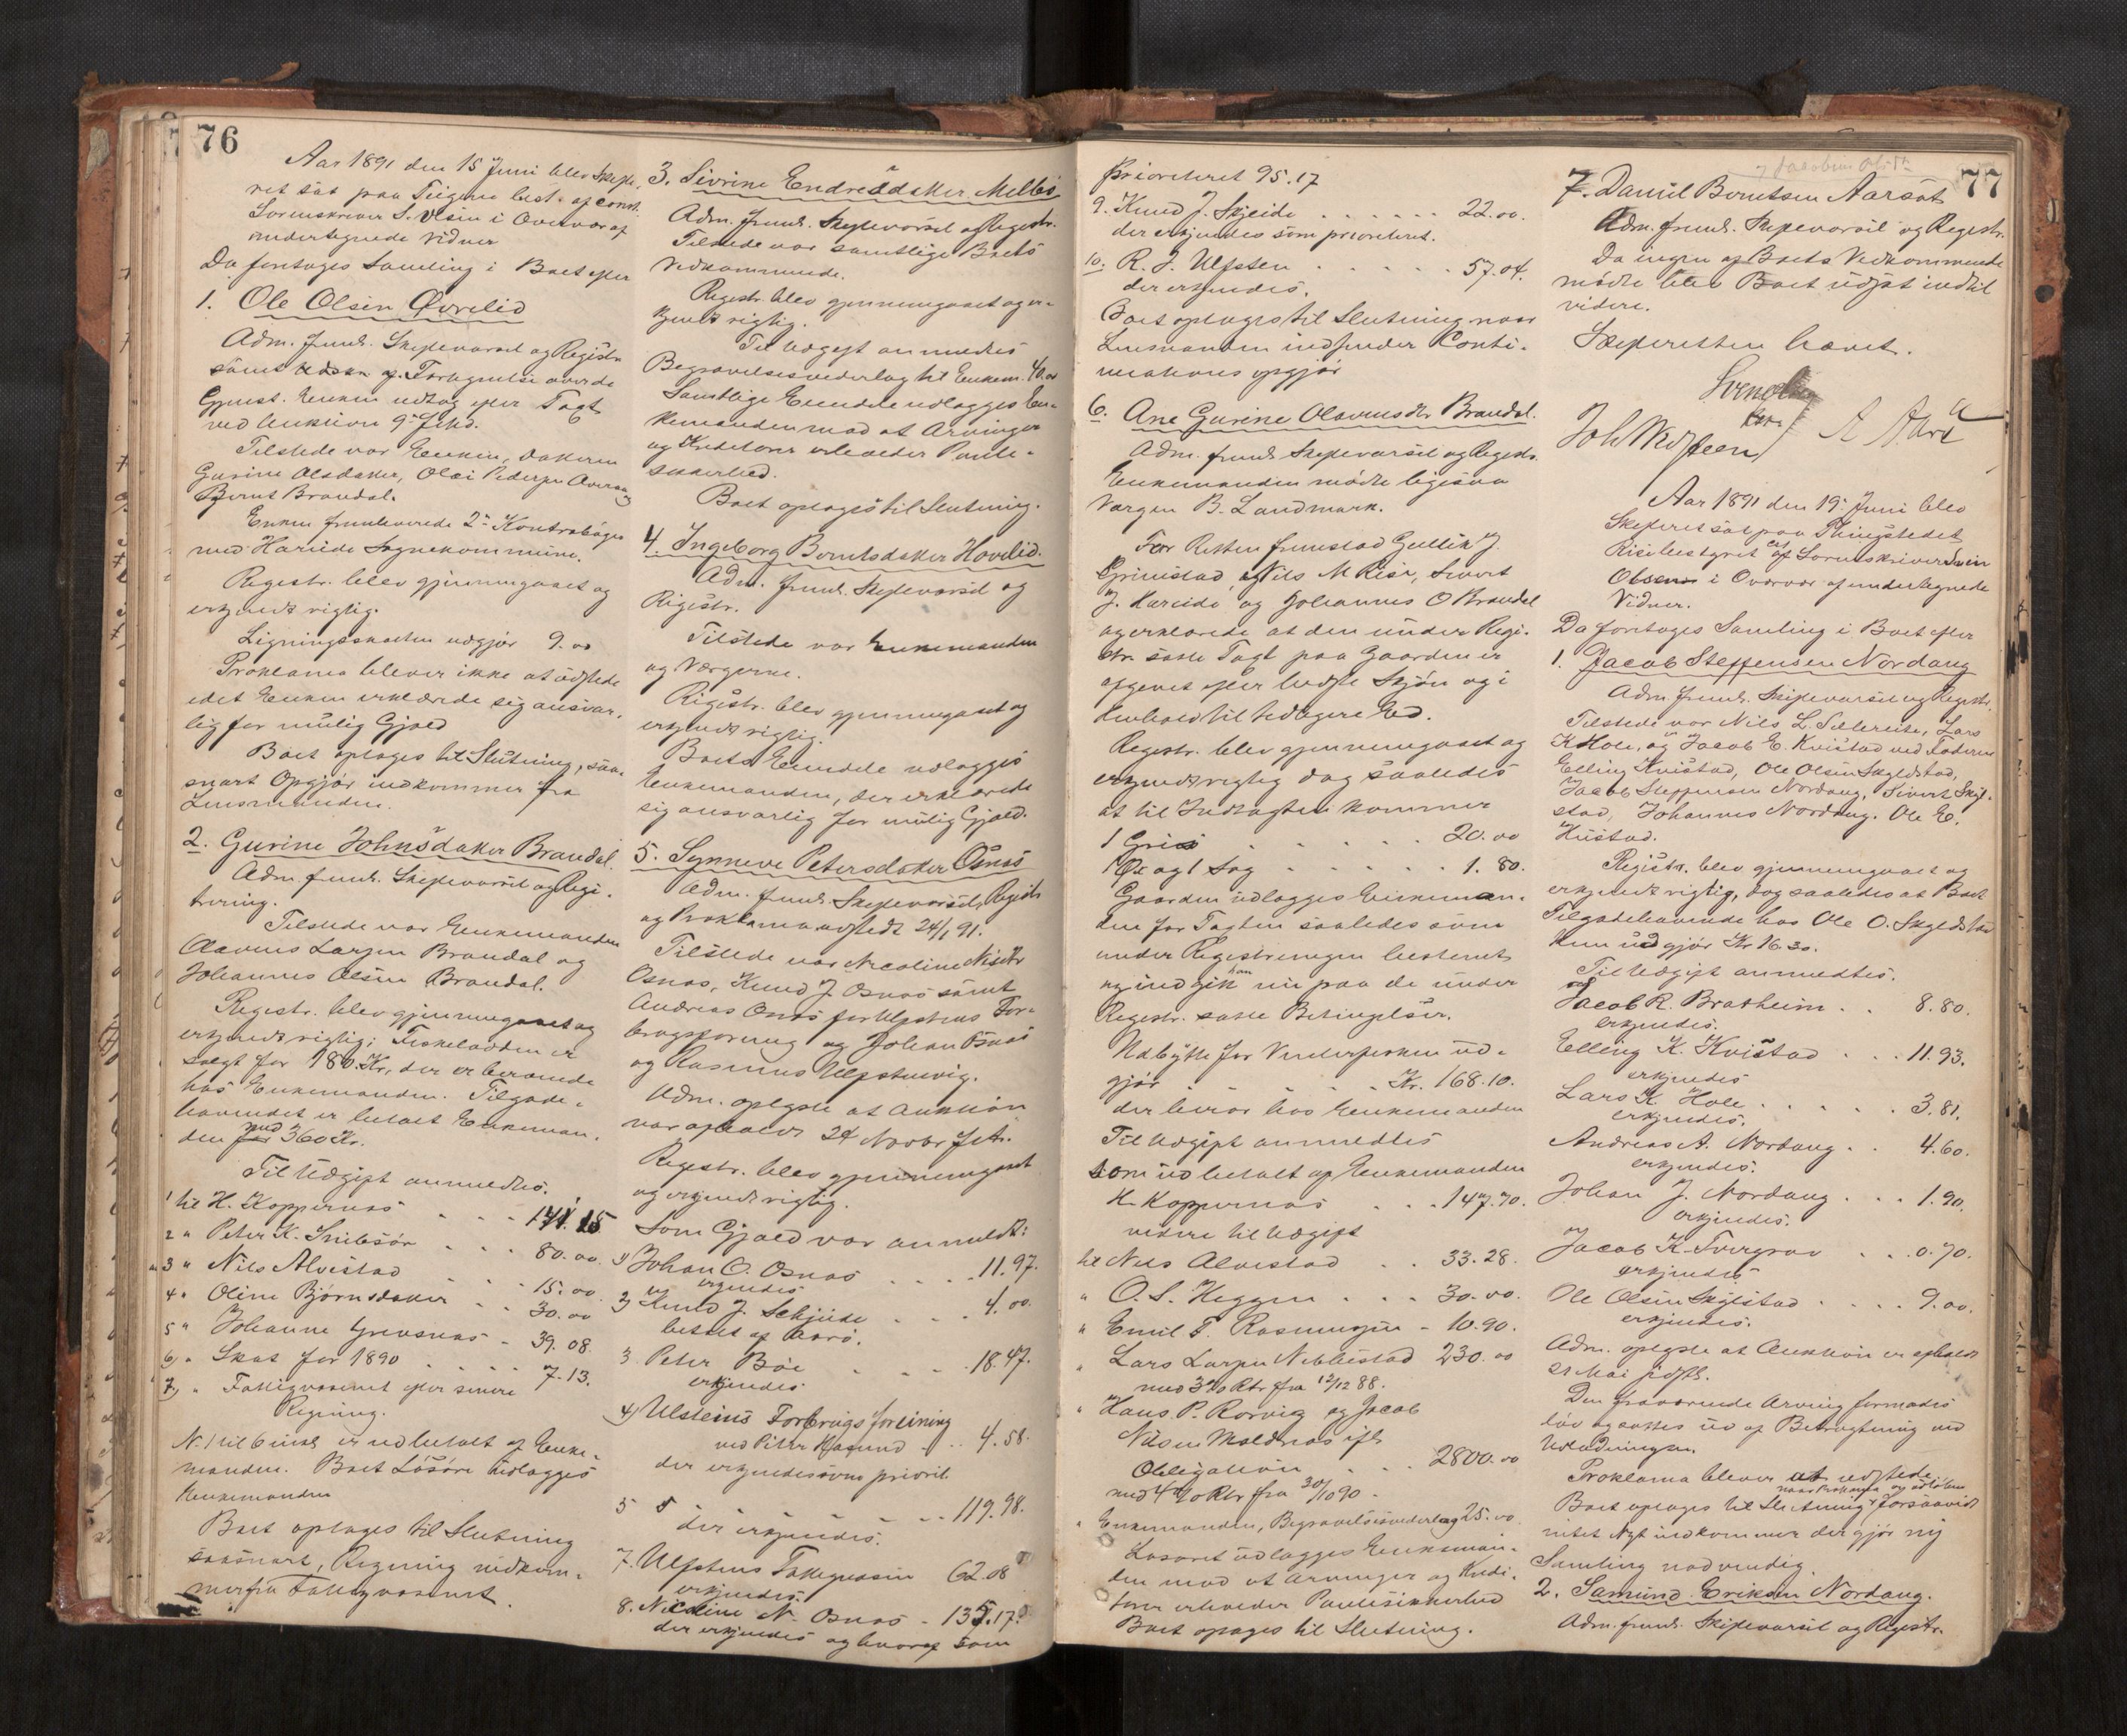 76
Aar 1891 den 15 Juni blev Skifte-
ret sat paa Teigene best. af const.
Sorenskriver S. Olsen i Overvær af
undertegnede Vidner
Da foretoges Samling i Boet efter
1. Ole Olsen Øvrelid
Adm. freml. Skiftevarsel og Registr.
samt Udskr. af Fortegnelse over de
Gjenst. Enken udtog efter Taxt
ved Auktion 9de Febr.
Tilstede var Enken, Datteren
Gurine Olsdatter, Olai Pedersen Aversæn og
Bernt Brandal.
Enken fremleverede 2de Kontrabøger
med Hareide Sognekommune.
Registr. blev gjennemgaaet og
erkjendt rigtig.
Ligningsskatten udgjør 9.00
Proklama bliver ikke at udstede
idet Enken erklærede sig ansvar-
lig for mulig Gjæld
Boet optages til Slutning, saa-
snart Opgjør indkommer fra
Lensmanden.
2. Gurine Johnsdatter Brandal.
Adm. freml. Skiftevarsel og Regi-
trering.
Tilstede var Enkemanden
Olavus Larsen Brandal og
Johannes Olsen Brandal.
Registr. blev gjennemgaaet og
erkjendt rigtig; Fiskeladden er
solgt for 180 Kr, der er beroende
hos Enkemanden. Tilgode-
havendet er betalt Enkeman-
den med 360 Kr.
Til Udgift anmeldtes.
1 til H. Koppernæs . . . 141.15
2 " Peter K. Snibsør . . . 80.00
3 " Nils Alvestad . . . 15.00
4 " Oline Bjørnsdatter . . . 30.00
5 " Johanne Grevsnæs - 39.08
6) " Skat for 1890 . . . . . 7.13.
7) " Fattigvæsenet efter senere
Regning.
N. 1 til 6 incl. er udbetalt af Enke-
manden. Boet Løsøre udlægges
Enkemanden
Boet optages til Slutning
saasnart, Regning indkom-
mer fra Fattigvæsenet.
3. Sivrine Endredatter Melbø
Adm. freml. Skiftevarsel og Registr.
Tilstede var samtlige Boets
Vedkommende.
Registr. blev gjennemgaaet og er-
kjendt rigtig.
Til Udgift anmeldtes
Begravelsesvederlag til Enkem. 40.00
Samtlige Eiendele udlægges En-
kemanden mod at Arvinger
og Kreditorer erholder Pante-
sikkerhed.
Boet optages til Slutning.
4. Ingeborg Berntsdatter Hovlid.
Adm. freml. Skiftevarsel og
Registr.
Tilstede var Enkemanden
og Værgerne.
Registr. blev gjennemgaaet og
erkjendt rigtig.
Boets Eiendele udlægges
Enkemanden, der erklærede
sig ansvarlig for mulig Gjæld.
5. Synneve Petersdatter Osnæs
Adm. freml. Skiftevarsel, Registr
og Proklama udstedt 24/1 91.
Tilstede var Nicoline Nisdtr
Osnæs, Knud J. Osnæs samt
Andreas Osnæs for Ulfstens For-
brugsforening og Johan Osnæs
og Rasmus Ulfstenvig.
Adm. oplyste at Auktion
var afholdt 24 Novbr f. A.
Registr. blev gjennemgaaet
og erkjendt rigtig.
Som Gjæld var anmeldt:
1) Johan O. Osnæs . . . . 11.97.
erkjendes
2) Knud J. Schjeide . . . 4.00.
betalt af Boet.
3 Peter Bøe . . . 18.47.
erkjendes
4) Ulsteins Forbrugsforening
ved Peter Hasund - . . 4.58.
der erkjendes som priorit.
5 . . . . 119.98.
der erkjendes.
7. Ulfstens Fattigvæsen 62.08
erkjendes.
8. Nicoline N. Osnæs - 135.17.
der erkjendes og hvoraf som
Prioriteret 95.17
9. Knud J. Skjeide . . . . . . 22.00.
der erkjendes som prioriteret.
10. R. J. Ulfsten . . . . . 57.04.
der erkjendes.
Boet optages til Slutning naar
Lensmanden indsender Konti-
nuations opgjør
6. Ane Gurine Olavusdtr Brandal.
Adm. freml Skiftevarsel og Registr.
Enkemanden mødte ligesaa
Værgen B. Landmark.
For Retten fremstod Gullik J.
Grimstad og Nils M Risø, Sivert
J. Hareide og Johannes O Brandal
og erklærede at den under Regi-
str. satte Taxt paa Gaarden er
afgivet efter bedste Skjøn og i
Henhold til tidligere Ed.
Registr. blev gjennemgaaet og
erkjendt rigtig dog saaledes
at til Indtægten kommer
1 Gris . . . . . 20.00
1 Øx og 1 Sag . . . . . 1.80.
Gaarden udlægges Enkeman-
den for Taxten saaledes som
under Registreringen bestemt
og indgik han nu paa de under
Registr. satte Betingelser.
Udbytte for Vinterfisken ud-
gjør . . . . . . Kr. 168.10.
der beror hos Enkemanden
Til Udgift anmeldtes
som udbetalt af Enkemanden
H. Koppernæs . . . 147.70.
videre til Udgift
til Nils Alvestad . . 33.28.
" O. S. Heggen . . . 30.00.
" Emil T. Rasmussen - 10.90.
" Lars Larsen Nebbestad 230.00
med 3% Rtr fra 12/12 88.
" Hans P. Rørvig og Jacob
Nilsen Moldnæs ifl.
Obligation . . . 2800.00
med 4% Rtr fra 30/10 90.
" Enkemanden, Begravelsesvederlag 25.00
Løsøret udlægges Enkeman-
den mod at Arvinger og Kredi-
torer erholder Pantesikkerhed
Boet optages til Slutning.
77
7. Daniel Berntsen Aarsæt
Adm. freml. Skiftevarsel og Registr.
Da ingen af Boets Vedkommende
mødte blev Boet udsat indtil
videre.
Skifteretten hævet.
Aar 1891 den 19de Juni blev
Skifteret sat paa Thingstedet
Rise bestyret af Sorenskriver Svein
Olsen i Overvær af undertegnede
Vidner.
Da foretoges Samling i Boet efter
1. Jacob Steffensen Nordang
Adm. freml. Skiftevarsel og Registr.
Tilstede var Nils L. Sætereite, Lars
K Hole, og Jacob E. Kvistad ved Faderen
Elling Kvistad, Ole Olsen Skylstad,
Jacob Steffensen Nordang, Sivert Skyl-
stad, Johannes Nordang. Ole E.
Hustad.
Registr. blev gjennemgaaet og
erkjendt rigtig, dog saaledes at Boet
Tilgodehavende hos Ole O. Skylstad
kun udgjør Kr 16.30.
Til Udgift anmeldtes.
af Jacob R. Bratheim . . 8.80.
erkjendes.
Elling K. Kvistad . . . 11.93.
erkjendes
Lars K. Hole . . . . . 3.81.
erkjendes.
Andreas A. Nordang . . 4.60.
erkjendes.
Johan J. Nordang . . . 1.90.
erkjendes.
Jacob K. Tvergrov . . . 0.70.
erkjendes
Ole Olsen Skylstad . . . . 9.00.
erkjendes.
Adm. oplyste at Auktion er afholdt
21 Mai sidstl.
Den fraværende Arving formodes
død og sættes ud af Betragtning ved
Udlodningen.
Proklama bliver at udstede
naar Proklama er udløben
Boet optages til Slutning forsaavidt
intet Nyt indkommer der gjør ny
Samling nødvendig.
2. Samund Eriksen Nordang.
Adm. freml. Skiftevarsel og Registr.